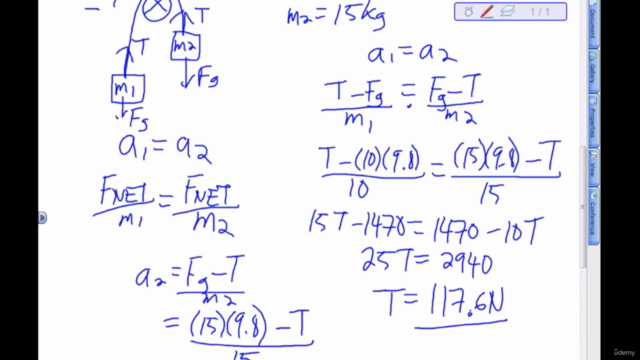 T T
m2
m1
Fg
Fg
a1 = a2
FNET/m1 = FNET/m2
a2 = Fg - T/m2
= (15)(9.8) - T/15
m2 = 15kg
a1 = a2
T - Fg/m1 = Fg - T/m2
T - (10)(9.8)/10 = (15)(9.8) - T/15
15T - 1470 = 1470 - 10T
25T = 2940
T = 117.6N
1/1
Document
Gallery
Properties
Conference
ûdemy